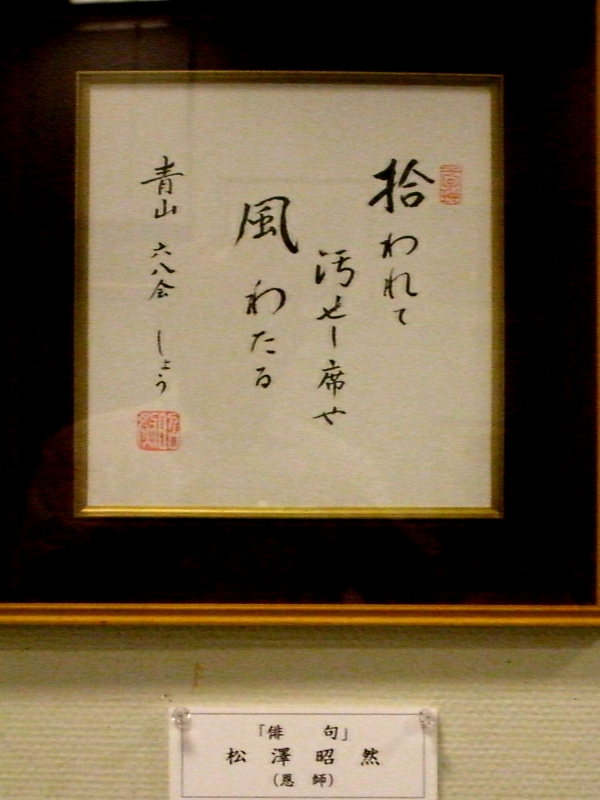 拾われて
汚せし席や
風わたる
青山 六八会 しょう
「俳 句」
松 澤 昭 然
(恩 師)